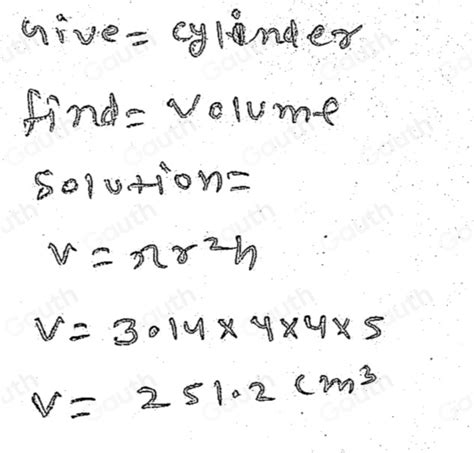 Give= cylinder
find= volume
solution=
V = πr²h
V= 3.14 × 4 × 4 × 5
V= 251.2 cm³